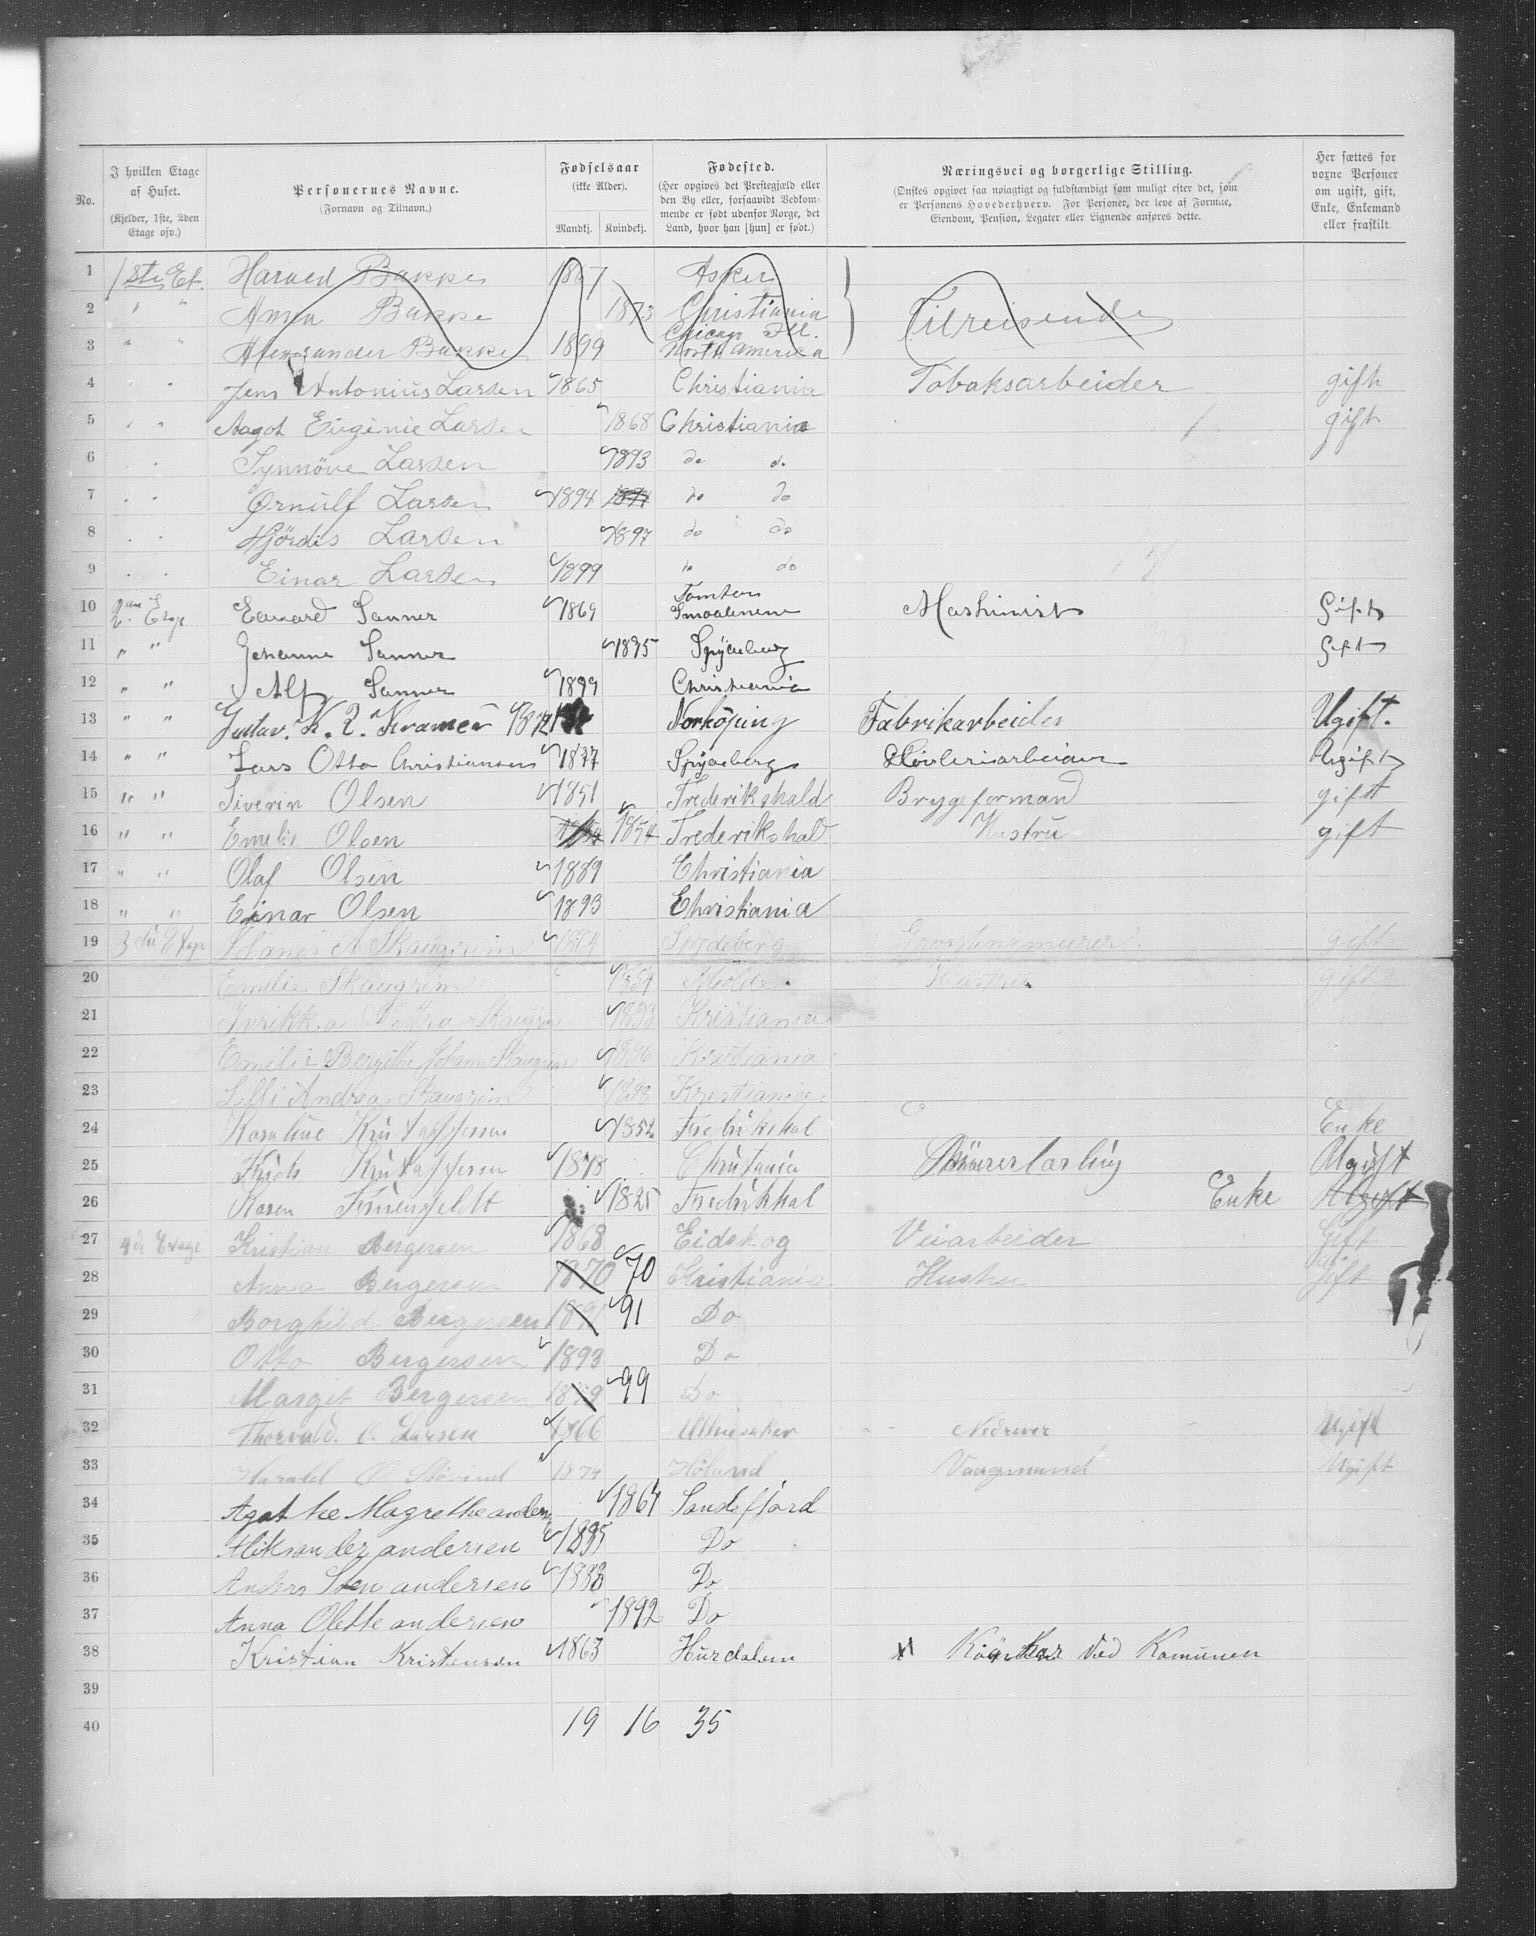 No.
I hvilken Etage af Huset.
(Kjelder, 1ste, 2den Etage osv.)
Personernes Navne.
(Fornavn og Tilnavn.)
Fødselsaar
(ikke Alder).
Mandkj. Kvindekj.
Fødested.
(Her opgives det Prestegjæld eller
den By eller, forsaavidt Vedkom-
mende er født udenfor Norge, det
Land, hvor han [hun] er født.)
Næringsvei og borgerlige Stilling.
(Ønskes opgivet saa nøiagtigt og fuldstændigt som muligt efter det, som
er Personens Hovederhverv. For Personer, der leve af Formue,
Eiendom, Pension, Legater eller Lignende anføres dette.
Her sættes for
voxne Personer
om ugift, gift,
Enke, Enkemand
eller fraskilt.
1 1ste Et. Harved Bakke 1867 Asker
2 " " Anna Bakke 1873 Christiania Tilreisende
3 " " Alexander Bakke 1899 Chicago Ill. North America
4 " " Jens Antonius Larsen 1865 Christiania Tobaksarbeider gift
5 " " Aagot Eugenie Larsen 1868 Christiania gift
6 " " Synnöve Larsen 1893 do do
7 " " Ørnulf Larsen 1894 1894 do do
8 " " Hjördis Larsen 1897 do do
9 " " Einar Larsen 1899 do do
10 2den Etage Edvard Sanner 1869 Tomten Smaalenene Maskinist Gift
11 " " Johanne Sanner 1895 Spydeberg Gift
12 " " Alf Sanner 1899 Christiania
13 " " Gustav. K. L. Kramer 1872 Norköping Fabrikarbeider Ugift.
14 " " Lars Otto Christiansen 1877 Spydeberg Høvleriarbeider Ugift
15 " " Siverin Olsen 1851 Frederikshald Bryggeformand gift
16 " " Emelie Olsen 1854 1854 Frederikshald Hustru gift
17 " " Olaf Olsen 1889 Christiania
18 " " Einar Olsen 1893 Christiania
19 3die Etage Johanes A Skaugrim 1864 Spydeberg gift
20 Emelie Skaugrim 1854 Molde Hustru gift
21 Skaugrim 1893 Kristiania
22 Emelie Bergithe Johanne Skaugrim 1896 Kristiania
23 Lilli Andrea Skaugrim 1898 Kristiania
24 Karoline Kristoffersen 1852 Fredrikshal Enke
25 Kristoffersen 1878 Christania Murerlærling Ugift
26 Karen 1825 Fredrikhal Enke Ugift
27 4de Etage Kristian Bergersen 1868 Eidskog Veiarbeider Gift
28 Anna Bergersen 1870 70 Kristiania Hustru gift
29 Borghild Bergersen 1891 91 Do
30 Otto Bergersen 1893 Do
31 Margit Bergersen 1899 99 Do
32 Thorvald. O. Larsen 1866 Ullensaker Ugift
33 Harald O. 1874 Höland Vaagmand Ugift
34 Agathe Magrethe andersen 1864 Sandefjord
35 Aleksander andersen 1885 Do
36 Anders Sven andersen 1888 Do
37 Anna Olette andersen 1892 Do
38 Kristian Kristensen 1863 Hurdalen Kjörkar ved Komunen
39
40 19 16 35